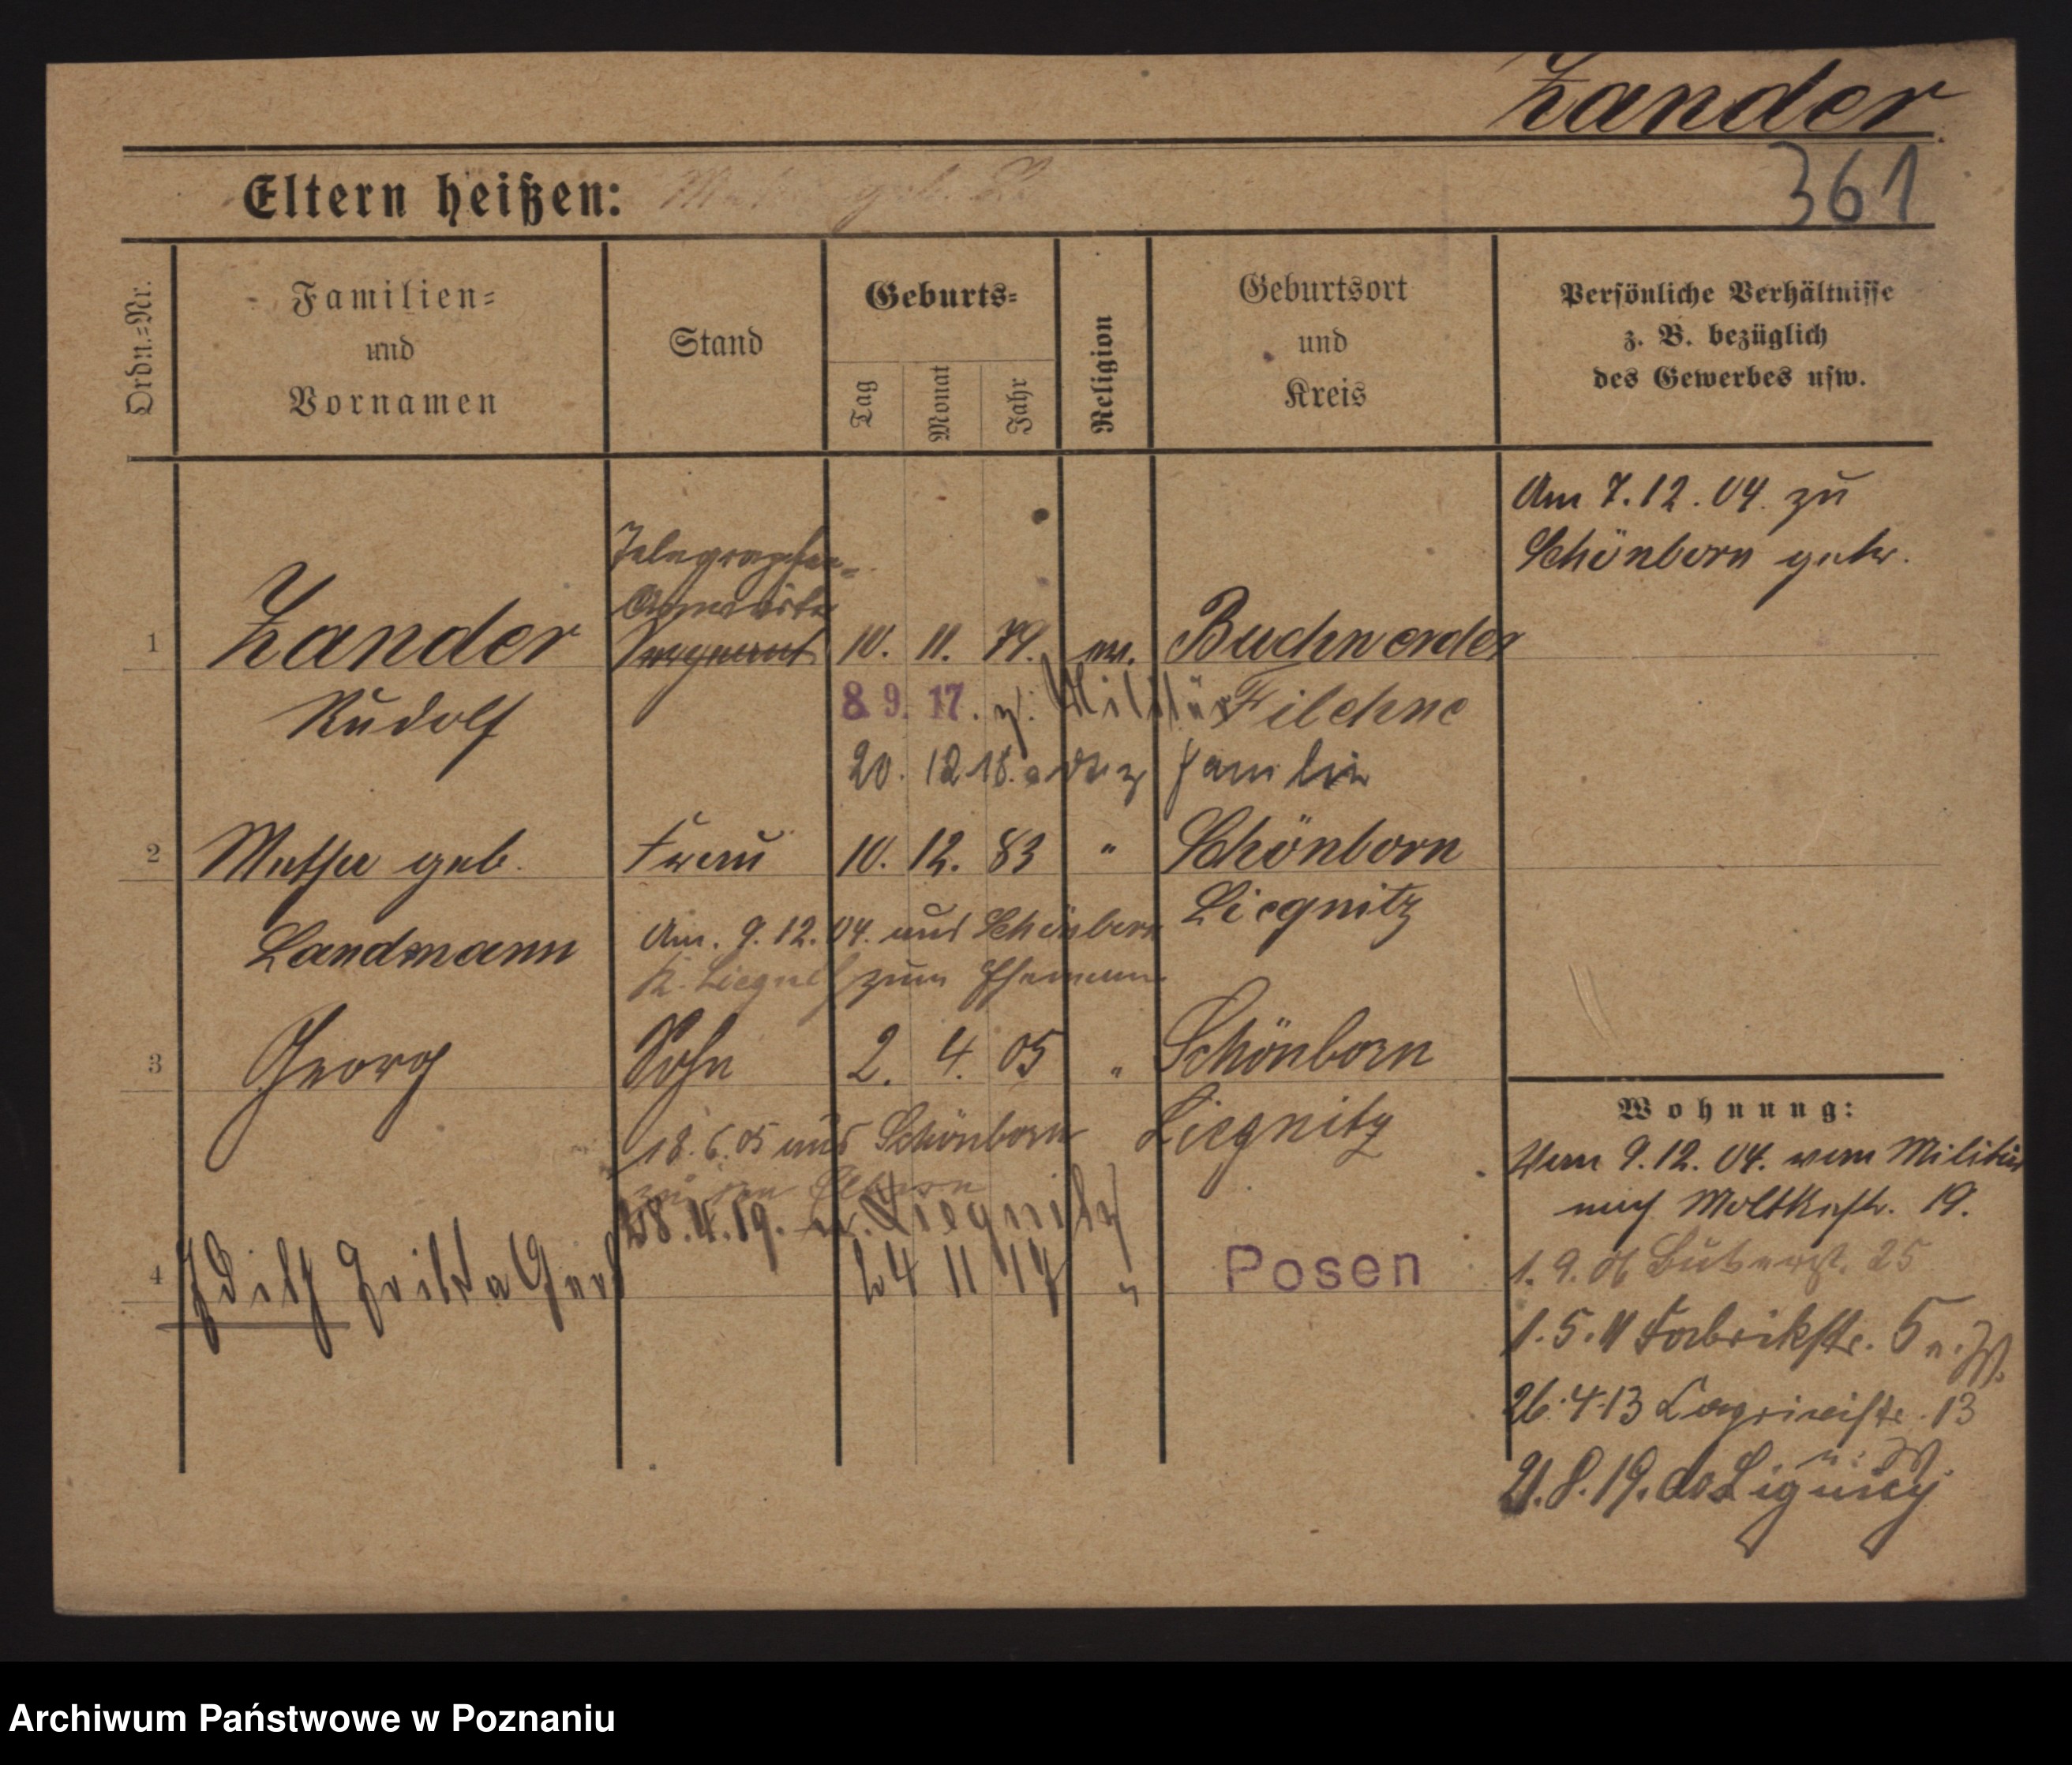 Zander
361
Eltern heißen:
Ordn.=Nr.
Familien=
und
Vornamen
Stand
Geburts=
Tag
Monat
Jahr
Religion
Geburtsort
und
Kreis
Persönliche Verhältnisse
z. B. bezüglich
des Gewerbes usw.
Am 7.12.04. zu
Schönborn getr.
Telegraphen-
Anwärter
1 Zander Sergeant 10. 11. 79. ev. Buchwerder
Rudolf
8 9. 17. z. Militär Filehne
20. 12 18. z Familie
2 Martha geb. Frau 10. 12. 83 " Schönborn
Liegnitz
Landmann
Am. 9.12.04. aus Schönborn
K. Liegnitz zum Ehemann
3 Georg Sohn 2. 4. 05 " Schönborn
Liegnitz
18.6.05 aus Schönborn
zu den Eltern
28.4.19. Liegnitz
4 Edith Gerd 11 " Posen
Wohnung:
Vom 9.12.04. vom Militär
nach Moltkestr. 19.
1. 9. Bukerstr. 25
1.5.11 Fabrikstr. 5
26.4.13 13
21.8.19. do
Archiwum Państwowe w Poznaniu